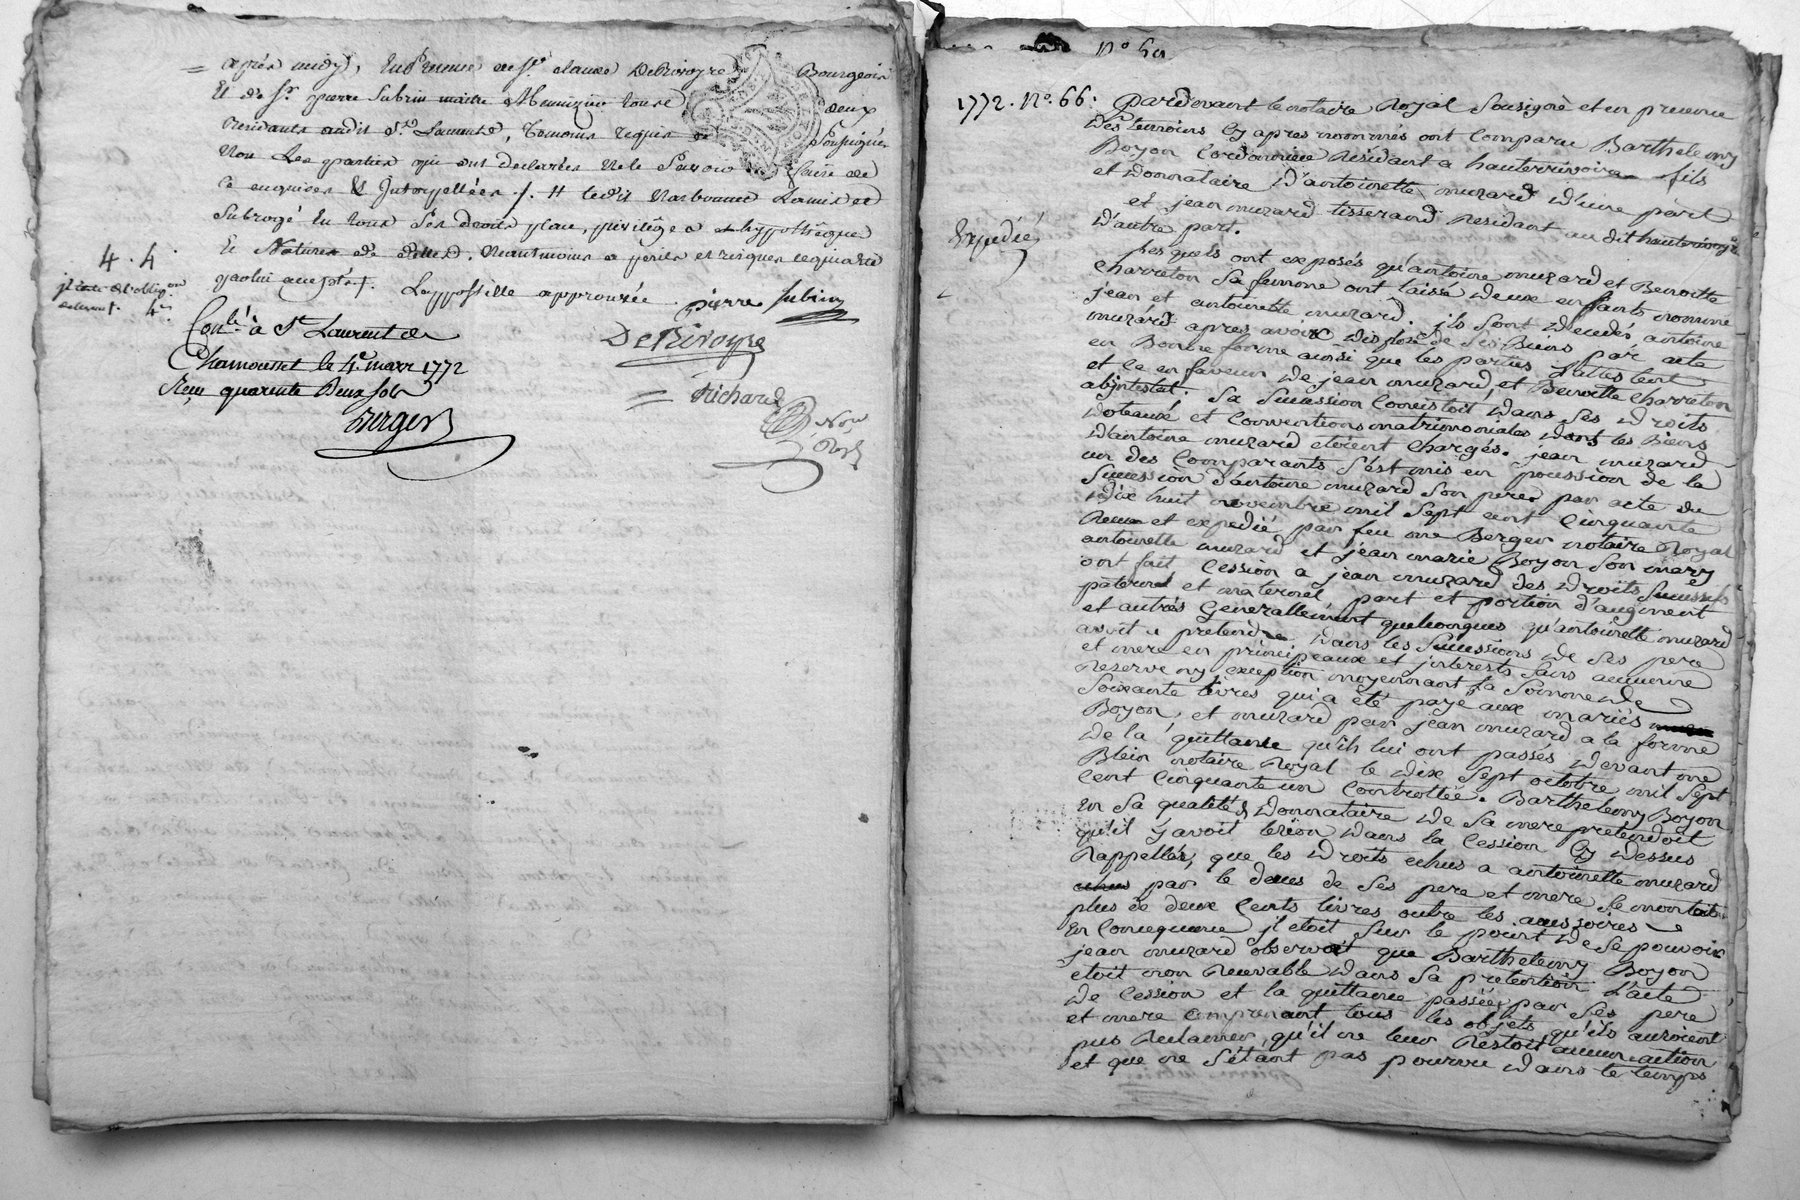 après midy, En Presence de Sr. claude DeRivoyre Bourgeois
Et de Sr. pierre Subrin maitre Menuizier tous deux
Residants audit St. Laurent, temoins requis soussignés
Non Les parties qui ont declarées ne le Savoir faire de
ce enquises & Interpellées ./. # ledit Narbonne Lemis et
Subrogé En tous Ses droits place, privilège et hypotheque
Et Nature de dettes. Neantmoins a perils et risques
par lui accepté ./. L'appostille approuvée. pierre subrin
4 . 4 .
DeRivoyre
Conlé à St Laurent de
Chamousset le 4e. mars 1772
Reçu quarante Deux sols
Berger
Richard
Nore
Royal
No 60
1772. No. 66. Pardevant le notaire Royal Sousigné et en presence
Des temoins Cy apres nommés ont Comparu Barthelemy
Boyon Cordonnier Résidant a hauterrivoire fils
et Donnataire D'antoinette muzard D'une part
et jean muzard tisserand Residant au dit hauterivoire
D'autre part.
Expedié
Lesquels ont exposés qu'antoine muzard et Benoitte
Charreton Sa femme ont laissé Deux enfants nommé
jean et antoinette muzard. jls Sont Decedés, antoine
muzard apres avoir Disposé de Ses Biens par acte
en Bonne forme ainsi que les parties L'attestent
et ce en faveur De jean muzard, et Benoitte Charreton
abjntestat. Sa Succession Consistoit Dans Ses Droits
Doteaux et Conventions matrimoniales Dont les Biens
D'antoine muzard etoient Chargés. jean muzard
un des Comparants S'est mis en possession de la
Succession d'antoine muzard Son pere, par acte du
Dix huit novembre mil Sept cent Cinquante
Receu et expedié par feu me Berger notaire Royal
antoinette muzard et jean marie Boyon Son mary
ont fait Cession a jean muzard des Droits Successifs
paternel et maternel part et portion d'augment
et autrés Generallement quelconques qu'antoinette muzard
avoit a pretendre Dans les Successions De Ses pere
et mere en principeaux et jnterests Sans aucunne
Reserve ny exception moyennant la Somme de
Soixante Livres qui a été payé aux mariés
Boyon, et muzard par jean muzard a la forme
De la quittance qu'ils lui ont passés Devant me
Blein notaire Royal le Dix Sept octobre mil Sept
Cent Cinquante un Controllée. Barthelemy Boyon
En Sa qualité de Donnataire De Sa mere pretendoit
qu'il y avoit lezion Dans la Cession Cy Dessus
Rappellée, que les Droits echus a antoinette muzard
echus par le deces de Ses pere et mere Se montoit
plus de deux Cents livres outre les accessoires
En Consequence jl etoit Sur le point De Se pouvoir
jean muzard observoit que Barthelemy Boyon
etoit non Recevable Dans Sa pretention L'acte
De Cession et la quittance passées par Ses pere
et mere Comprenant tous les objets qu'ils auroient
pus Reclamer, qu'il ne leur Restoit aucune action
et que ne S'étant pas pourvu Dans le temps